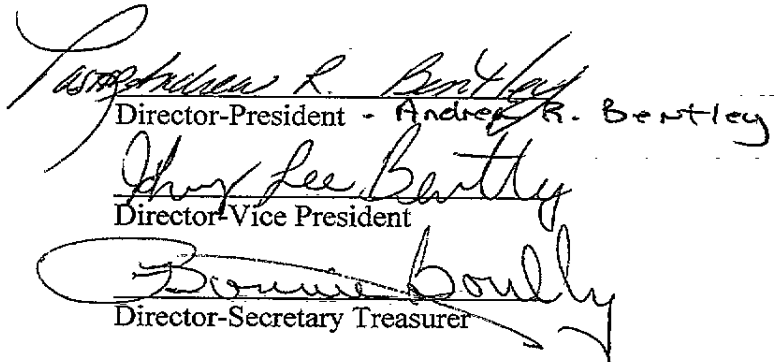 Pastor Andrew R. Bentley
Director-President - Andrew R. Bentley
Lee Bently
Director-Vice President
Bonnie
Director-Secretary Treasurer